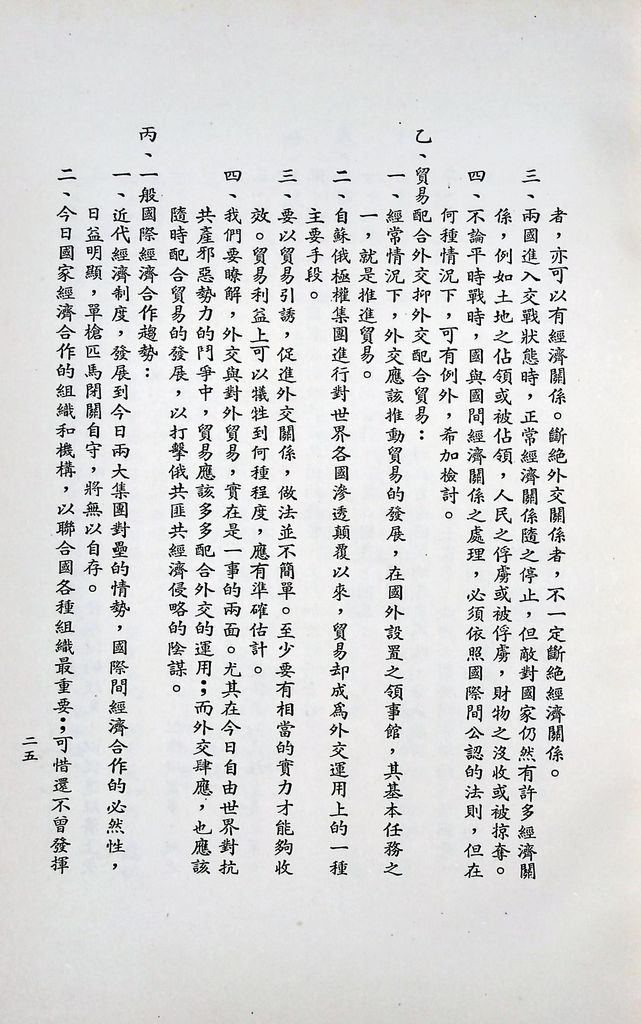 者，亦可以有經濟關係。斷絕外交關係者，不一定斷絕經濟關係。
三、兩國進入交戰狀態時，正常經濟關係隨之停止，但敵對國家仍然有許多經濟關
係，例如土地之佔領或被佔領，人民之俘虜或被俘虜，財物之沒收或被掠奪。
四、不論平時戰時，國與國間經濟關係之處理，必須依照國際間公認的法則，但在
何種情況下，可有例外，希加檢討。
乙、貿易配合外交抑外交配合貿易：
一、經常情況下，外交應該推動貿易的發展，在國外設置之領事館，其基本任務之
一，就是推進貿易。
二、自蘇俄極權集團進行對世界各國滲透顛覆以來，貿易却成爲外交運用上的一種
主要手段。
三、要以貿易引誘，促進外交關係，做法並不簡單。至少要有相當的實力才能夠收
效。貿易利益上可以犧牲到何種程度，應有準確估計。
四、我們要瞭解，外交與對外貿易，實在是一事的兩面。尤其在今日自由世界對抗
共產邪惡勢力的鬥爭中，貿易應該多多配合外交的運用；而外交肆應，也應該
隨時配合貿易的發展，以打擊俄共匪共經濟侵略的陰謀。
丙、一般國際經濟合作趨勢：
一、近代經濟制度，發展到今日兩大集團對壘的情勢，國際間經濟合作的必然性，
日益明顯，單槍匹馬閉關自守，將無以自存。
二、今日國家經濟合作的組織和機構，以聯合國各種組織最重要；可惜還不曾發揮
二五